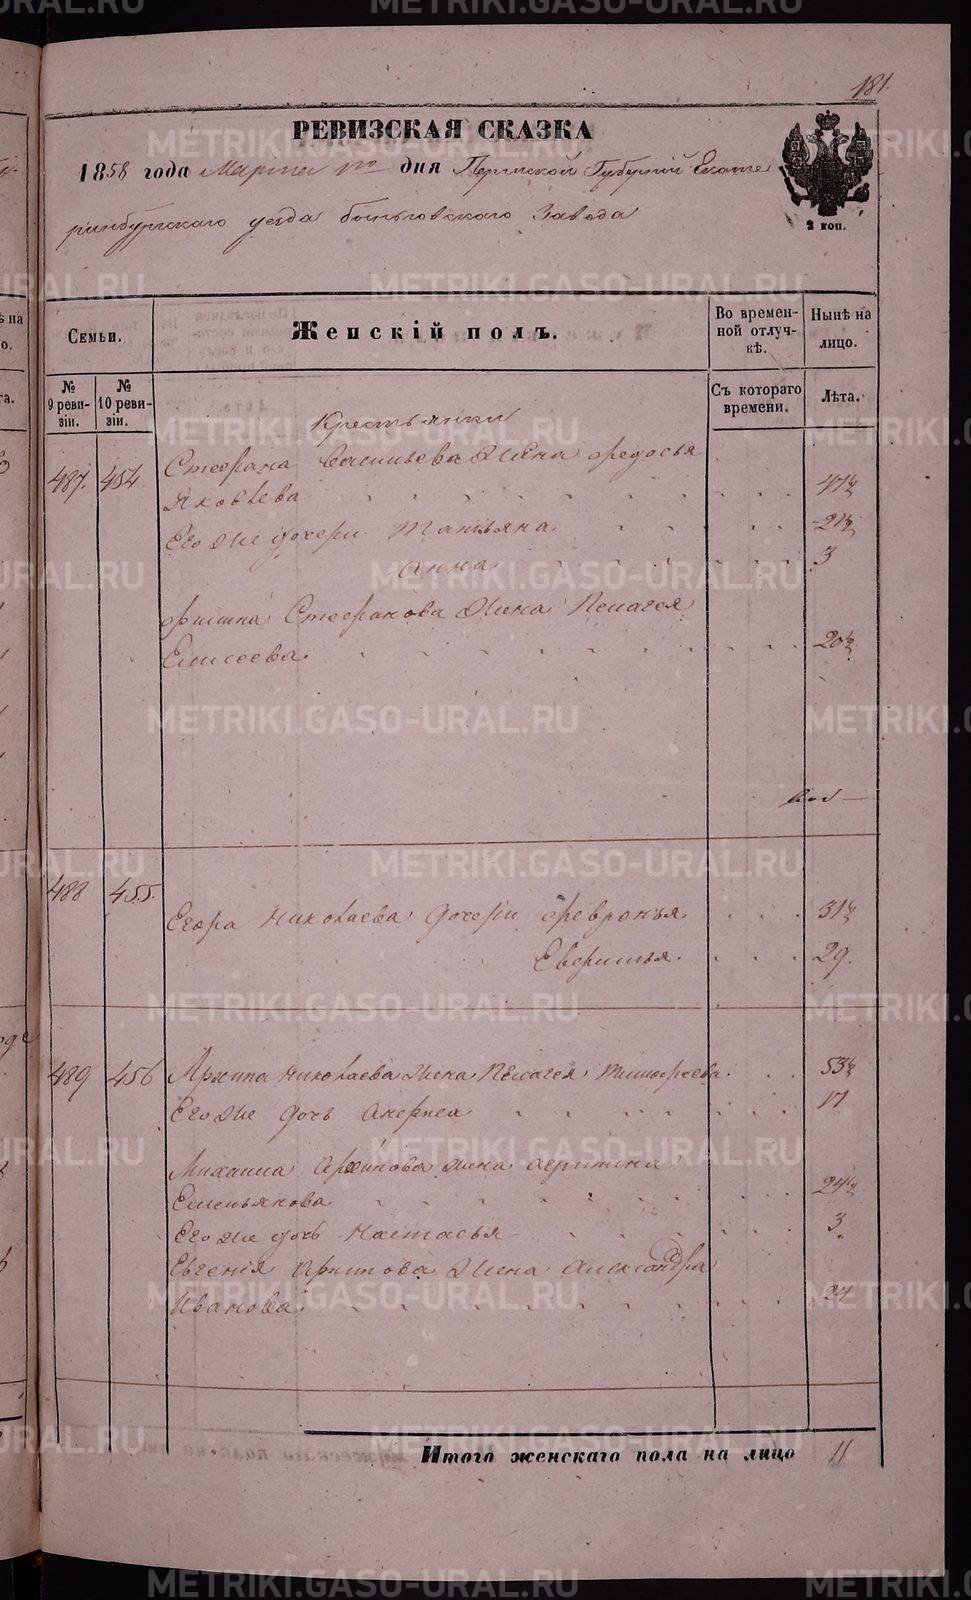 181.
РЕВИЗСКАЯ СКАЗКА
1858 года Марта 1го дня Пермской Губернiи Екате
ринбургскаго уезда быньговскаго Завода
2 коп.
Семьи.
Женскiй полъ.
Во времен-
ной отлуч-
кѣ.
Нынѣ на
лицо.
№
9 реви-
зiи.
№
10 реви-
зiи.
Съ котораго
времени.
Лѣта.
Крестьянки
487. 454. Стефана Савельева жена федосья
Яковлева 47½
Его же дочери Татьяна 21½
анна 3
филипа Стефанова жена Пелагея
Елисеева 20½
488 455. Егора Николаева дочери февронья 31½
29.
489 456 Архипа Николаева жена Пелагея тимофеева 53½
Его же дочь 17
Михаила архипова жена агрипина
Емельянова 24½
Его же дочь Настасья 3.
Евгенiя архипова жена александра
Иванова 24
Итого женскаго пола на лицо 11
METRIKI.GASO-URAL.RU